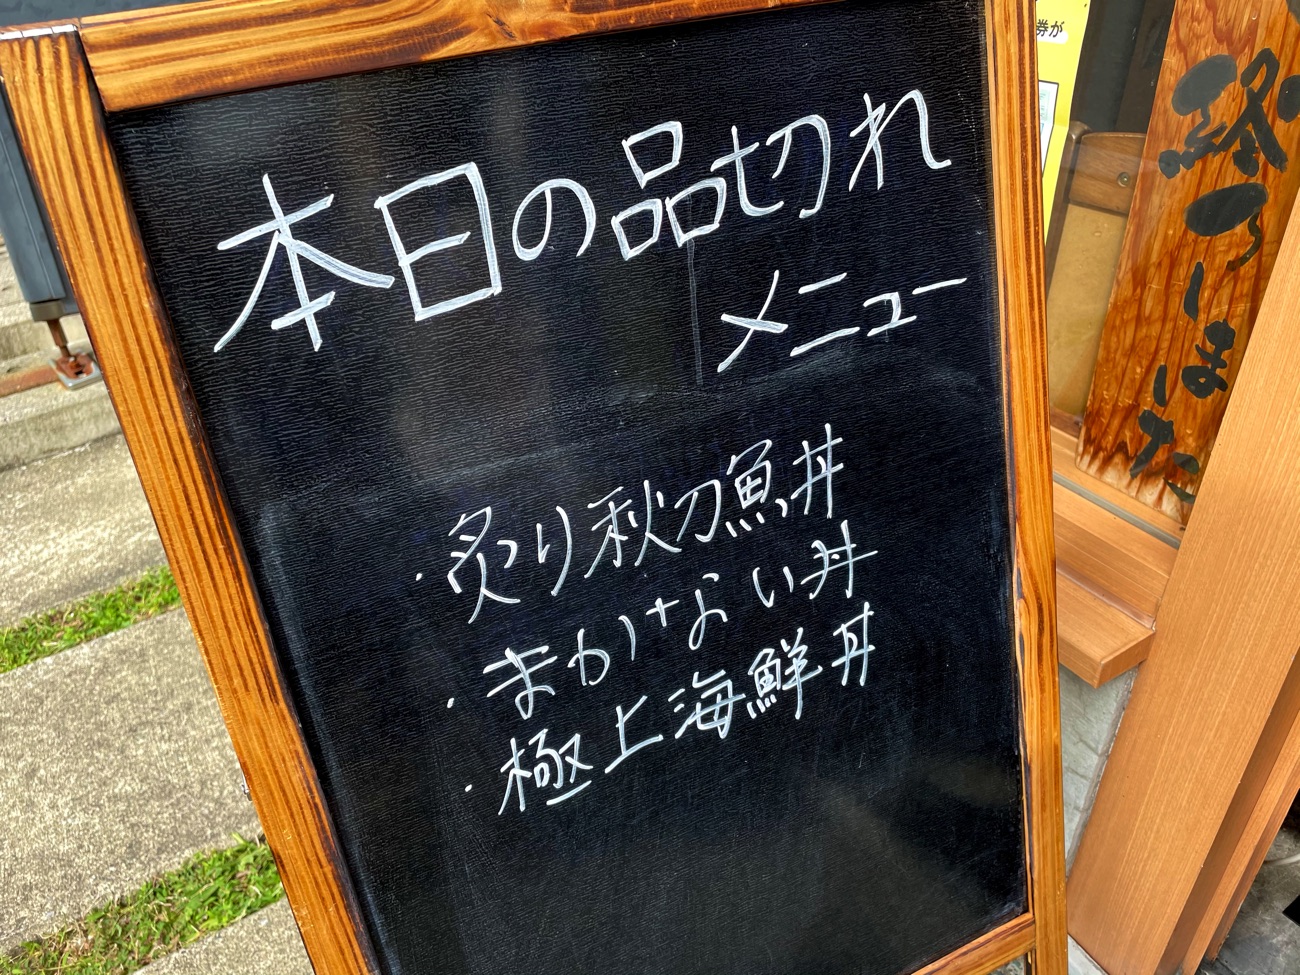 本日の品切れ
メニュー
・炙り秋刀魚丼
・まかない丼
・極上海鮮丼
券が
終つしまほた